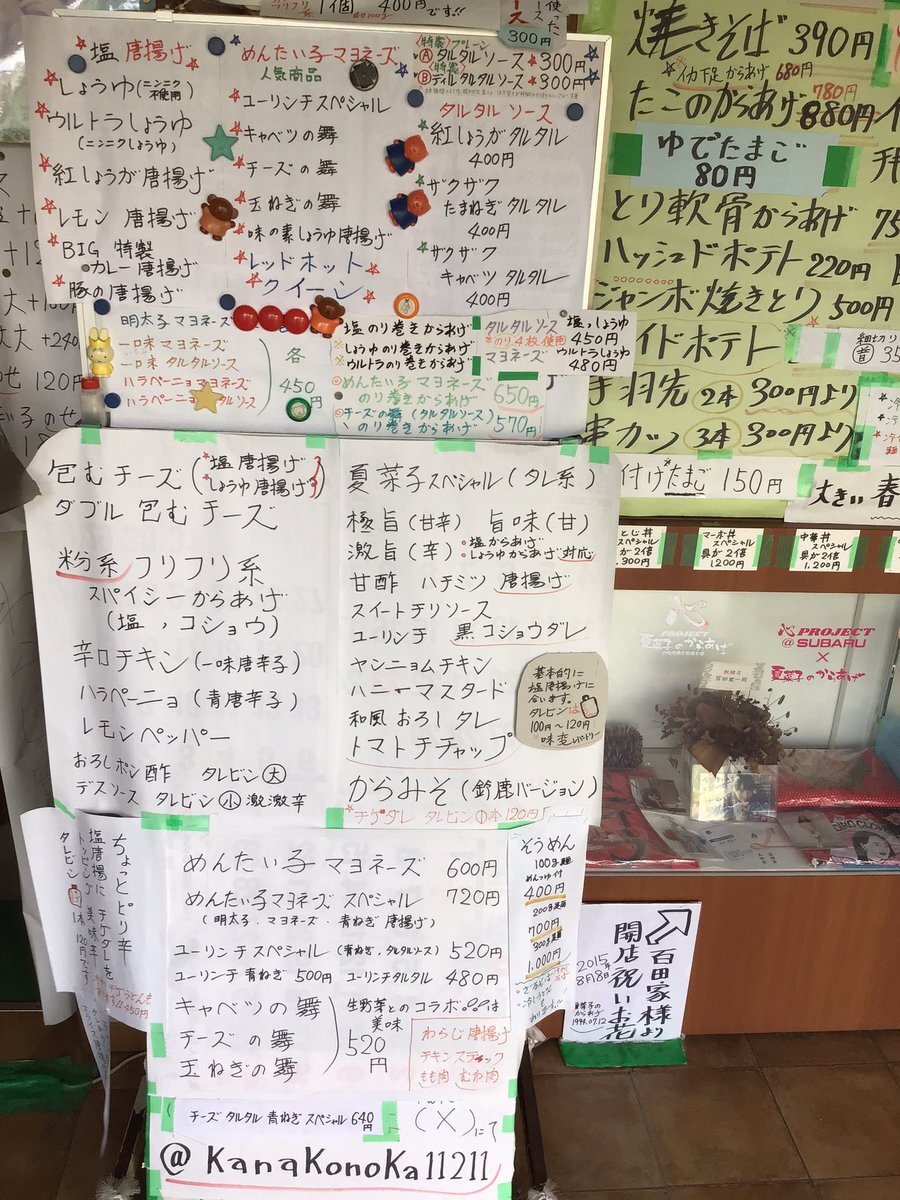 1個 400円です!!
使った
ース
300円
塩 唐揚げ
しょうゆ(ニンニク不使用)
ウルトラしょうゆ
(ニンニクしょうゆ)
紅しょうが唐揚げ
レモン 唐揚げ
BIG 特製
カレー唐揚げ
豚の唐揚げ
めんたい子マヨネーズ
人気商品
ユーリンチスペシャル
キャベツの舞
チーズの舞
玉ねぎの舞
味の素しょうゆ唐揚げ
レッドホット
クイーン
(特製)プレーン
Ⓐタルタルソース 300円
(特製)
Ⓑディルタルタルソース 300円
タルタルソース
紅しょうがタルタル
400円
ザクザク
たまねぎタルタル
400円
ザクザク
キャベツタルタル
400円
明太子マヨネーズ
一口味マヨネーズ
一口味タルタルソース
ハラペーニョマヨネーズ
各
450円
塩のり巻きからあげ
しょうゆのり巻きからあげ
ウルトラのり巻きからあげ
タルタルソース
のり4枚使用
マヨネーズ
塩,しょうゆ
450円
ウルトラしょうゆ
480円
めんたい子マヨネーズ
のり巻きからあげ
650円
チーズの舞(タルタルソース)
のり巻きからあげ
570円
焼きそば 390円
イカ下足からあげ 680円
たこのからあげ 780円 880円
ゆでたまご
80円
とり軟骨からあげ
ハッシュドポテト 220円
ジャンボ焼きとり 500円
イドポテト
手羽先 2本 300円より
串カツ 3本 300円より
付けたまご 150円
大きい春
とじ丼
スペシャル
具が2倍
1,300円
マーボ丼
スペシャル
具が2倍
1200円
中華丼
スペシャル
具が2倍
1,200円
包むチーズ(塩唐揚げ しょうゆ唐揚げ)
ダブル包むチーズ
粉系 フリフリ系
スパイシーからあげ
(塩,コショウ)
辛口チキン(一味唐辛子)
ハラペーニョ(青唐辛子)
レモンペッパー
おろしポン酢 タレビン大
デスソース タレビン小 激激辛
夏菜子スペシャル(タレ系)
極旨(甘辛) 旨味(甘)
激旨(辛) 塩からあげ しょうゆからあげ 対応
甘酢 ハチミツ 唐揚げ
スイートチリソース
ユーリンチ 黒コショウダレ
ヤンニョムチキン
ハニーマスタード
和風おろしタレ
トマトチチャップ
からみそ(鈴鹿バージョン)
チゲダレ タレビン①本120円
基本的に
塩唐揚げに
合います。
タレビンは
100円~120円
味変レパートリー
PROJECT
夏菜子のからあげ
PROJECT
@SUBARU
×
夏菜子のからあげ
ちょっとピリ辛
塩唐揚に チゲダレを
トッピング 美味辛
タレビン 1本120円です
めんたい子マヨネーズ 600円
めんたい子マヨネーズスペシャル 720円
(明太子・マヨネーズ・青ねぎ唐揚げ)
ユーリンチスペシャル(青ねぎ,タルタルソース) 520円
ユーリンチ青ねぎ 500円 ユーリンチタルタル 480円
キャベツの舞
チーズの舞
玉ねぎの舞
生野菜とのコラボは
美味
520円
わらじ唐揚げ
チキンスティック
もも肉 むね肉
そうめん
100g麺
めんつゆ付
400円
200g麺
700円
300g麺
1,000円
百田家様より
開店祝いお花
2015年
8月8日
夏菜子の
からあげ
1994.07.12
チーズタルタル青ねぎスペシャル640円
(X)にて
@KanaKonoKa11211